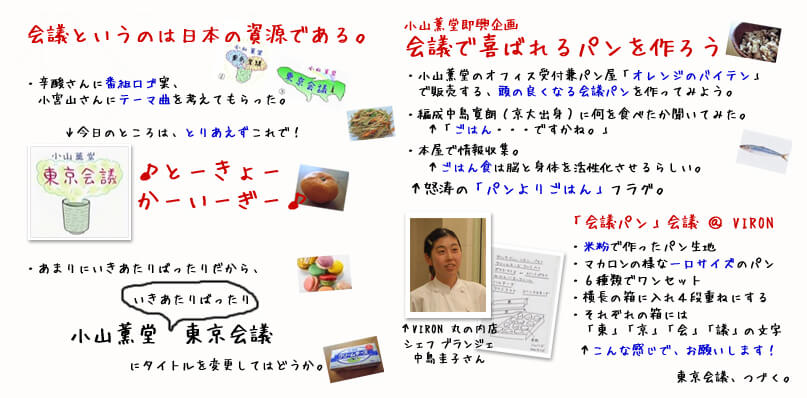 会議というのは日本の資源である。
小山薫堂
東京会議
①
小山薫堂
東京会議
③
・辛酸さんに番組ロゴ案、
小宮山さんにテーマ曲を考えてもらった。
↓今日のところは、とりあえずこれで！
小山薫堂
東京会議
♪とーきょー
かーいーぎー♪
・あまりにいきあたりばったりだから、
いきあたりばったり
小山薫堂 東京会議
にタイトルを変更してはどうか。
小山薫堂即興企画
会議で喜ばれるパンを作ろう
・小山薫堂のオフィス受付兼パン屋「オレンジのパイテン」
で販売する、頭の良くなる会議パンを作ってみよう。
・編成中島寛朗（京大出身）に何を食べたか聞いてみた。
↑「ごはん・・・ですかね。」
・本屋で情報収集。
↑ごはん食は脳と身体を活性化させるらしい。
↑怒涛の「パンよりごはん」フラグ。
↑VIRON 丸の内店
シェフ ブランジェ
中島圭子さん
「会議パン」会議 @ VIRON
・米粉で作ったパン生地
・マカロンの様な一口サイズのパン
・６種類でワンセット
・横長の箱に入れ４段重ねにする
・それぞれの箱には
「東」「京」「会」「議」の文字
↑こんな感じで、お願いします！
東京会議、つづく。